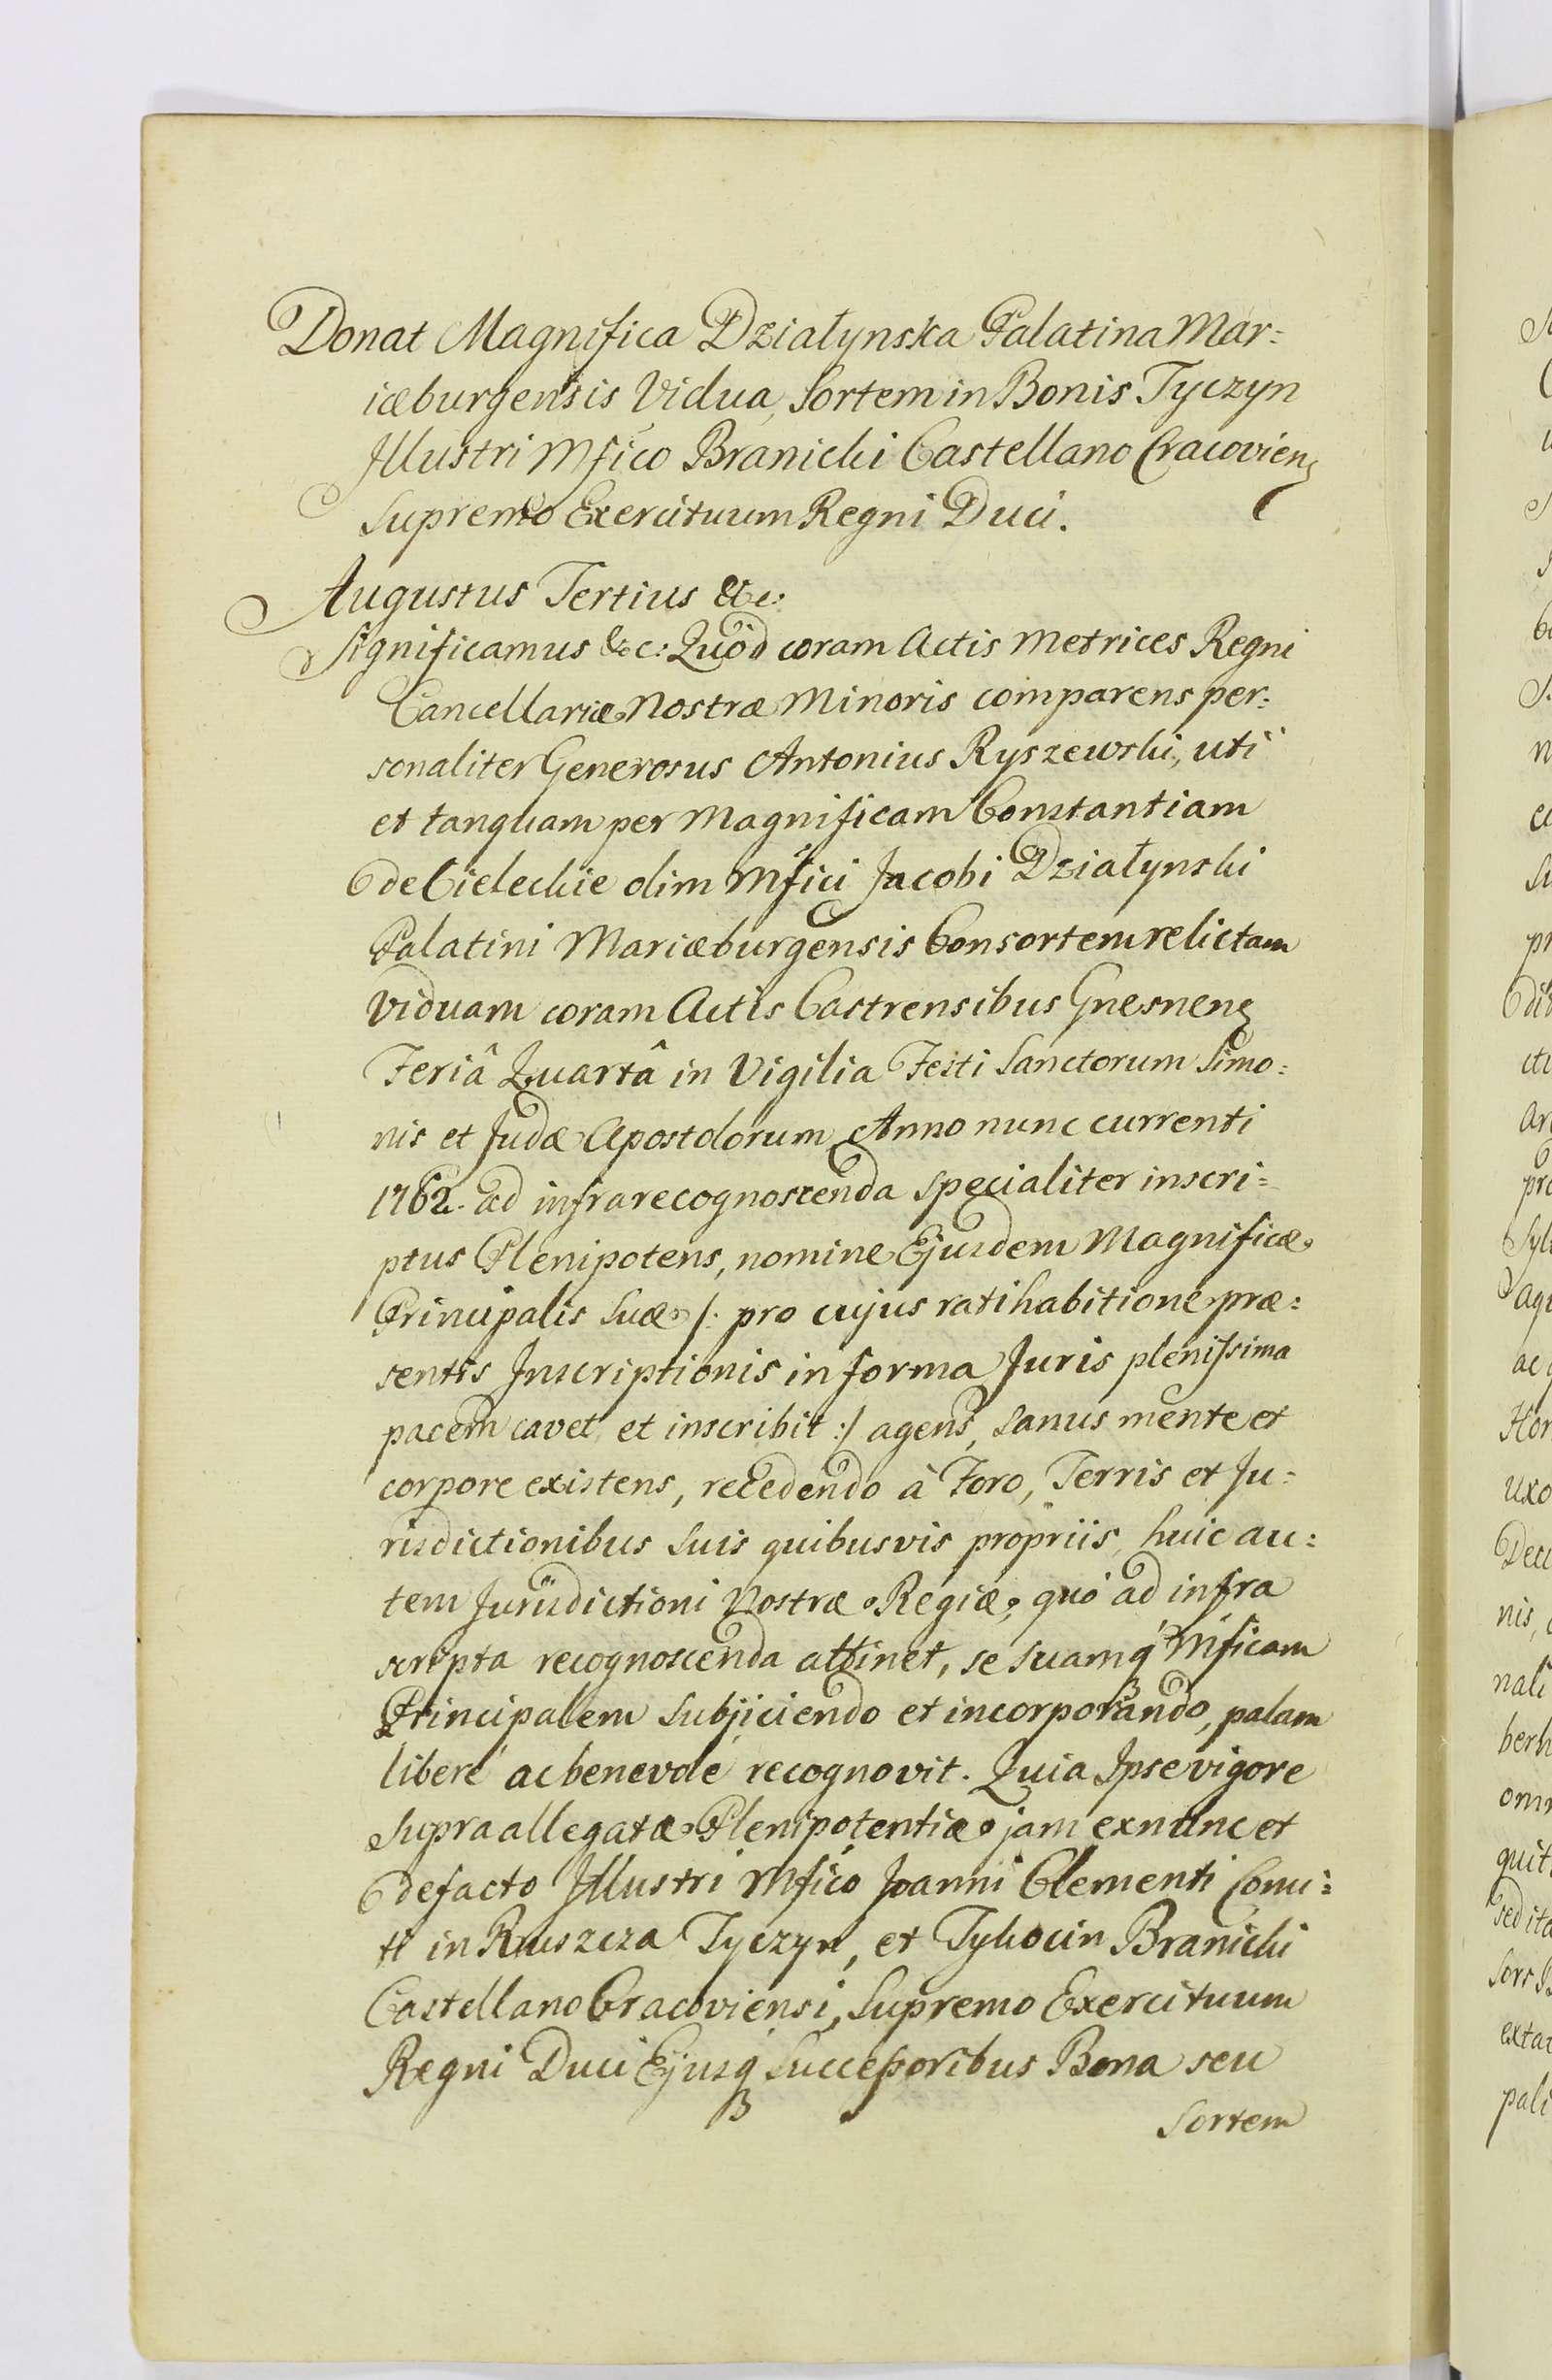 Donat Magnifica Działynska Palatina Mar=
iæburgensis Vidua, Sortem in Bonis Tyczyn
Illustri Mfico Branicki Castellano Cracovien
Supremo Exercituum Regni Duci.
Augustus Tertius &c:
Significamus &c: Quod coram Actis Metrices Regni
Cancellariæ Nostræ Minoris comparens per=
sonaliter Generosus Antonius Ryszewski, uti
et tanquam per Magnificam Constantiam
de Cieleckie olim Mfici Jacobi Działynski
Palatini Mariæburgensis Consortem relictam
Viduam coram Actis Castrensibus Gnesnen
Feriâ Quartâ in Vigilia Festi Sanctorum Simo=
nis et Judæ Apostolorum Anno nunc currenti
1762. ad infrarecognoscenda specialiter inscri=
ptus Plenipotens, nomine Ejusdem Magnificæ
Principalis Suæ /: pro cujus ratihabitione præ=
sentis Inscriptionis in forma Juris plenissima
pacem cavet et inscribit :/ agens, sanus mente et
corpore existens, recedendo à Foro, Terris et Ju=
risdictionibus Suis quibusvis propriis, huic au=
tem Jurisdictioni Nostræ Regiæ, quó ad infra
scripta recognoscenda attinet, se suamq Mficam
Principalem Subjiciendo et incorporando, palam
liberé ac benevolé recognovit. Quia Ipse vigore
Supraallegatæ Plenipotentiæ jam exnunc et
defacto Illustri Mfico Joanni Clementi Comi=
ti in Ruszcza Tyczyn, et Tykocin Branicki
Castellano Cracoviensi, Supremo Exercituum
Regni Duci Ejusq Successoribus Bona seu
Sortem